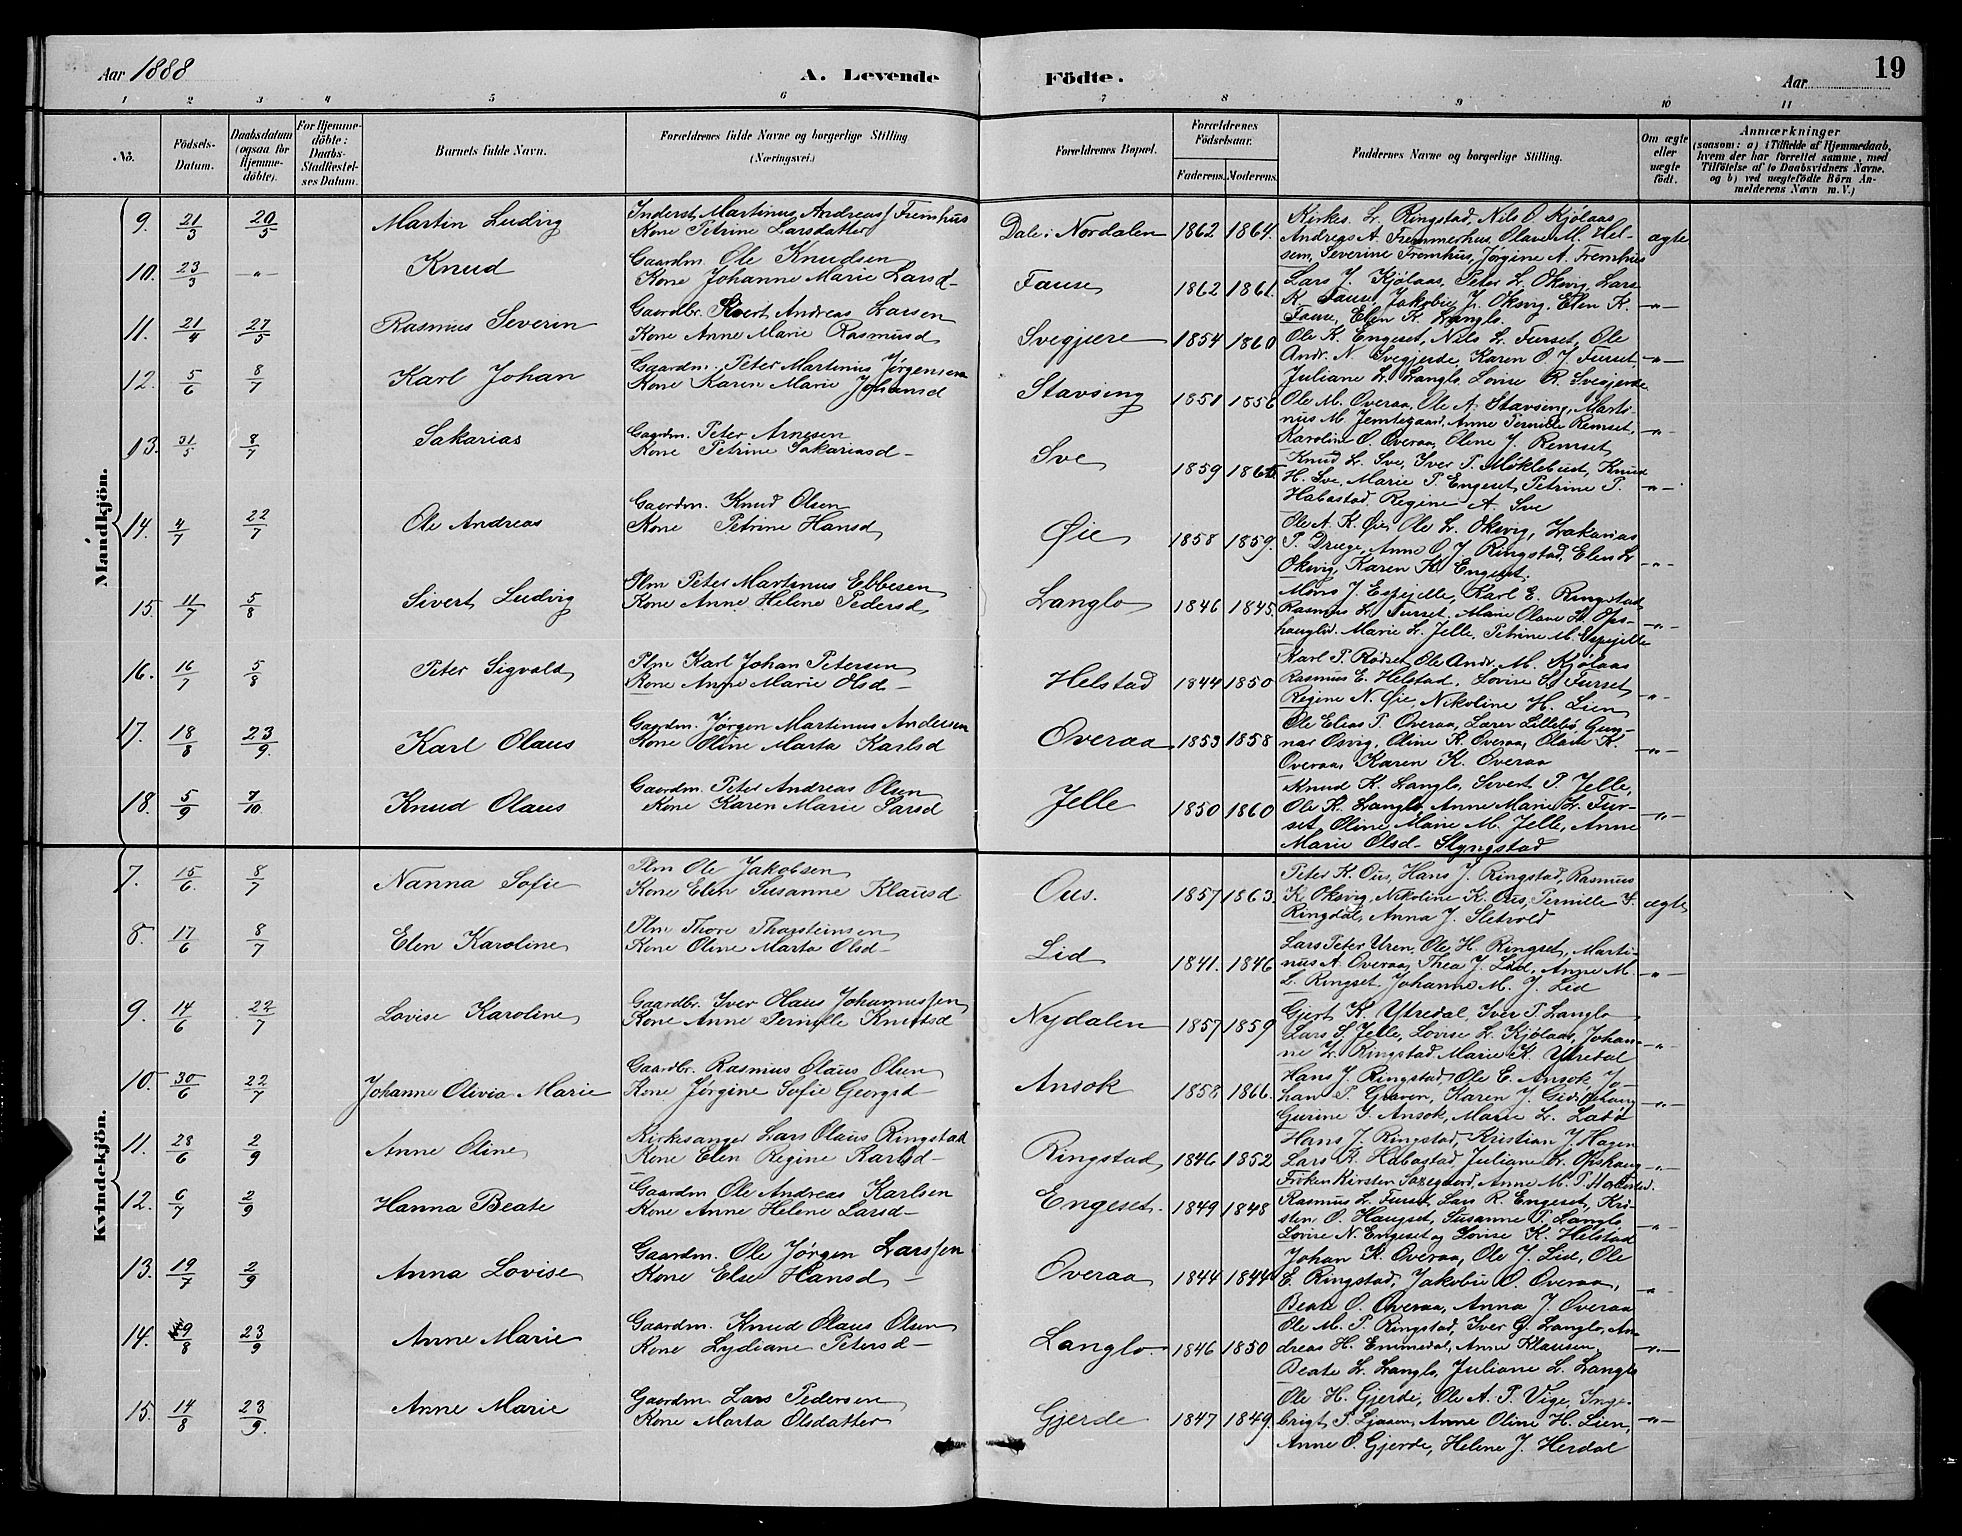 Aar 1888
A. Levende
Födte.
Aar
19
1 2 3 4 5 6 7 8 9 10 11
No.
Födsels-
Datum.
Daabsdatum
(ogsaa for
Hjemme-
döbte).
For Hjemme-
döbte:
Daabs-
Stadfæstel-
ses Datum.
Barnets fulde Navn.
Forældrenes fulde Navne og borgerlige Stilling
(Næringsvei.)
Forældrenes Bopæl.
Forældrenes
Födselsaar.
Faderens. Moderens.
Faddernes Navne og borgerlige Stilling.
Om ægte
eller
uægte
födt.
Anmærkninger
(saasom: a) i Tilfælde af Hjemmedaab,
hvem der har forrettet samme, med
Tilföielse af to Daabsvidners Navne.
og b) ved uægtefödte Börn An-
melderens Navn m. V.)
Mandkjön.
9. 21/3 20/5 Martin Ludvig
Inderst Martinus Andreas s Fremhus
Kone Petrine Larsdatter
Dale i Nordalen 1862 1864.
Kirkes. L. Ringstad, Nils O. Kjølaas
Andreas A. Fremmerhus, Olave M. Hel-
sem, Severine Fremhus, Jørgine A. Fremhus
ægte
10. 23/3 -"- Knud
Gaardm. Ole Knudsen
Kone Johanne Marie Larsd-
Fause 1862 1861.
Lars J. Kjølaas, Peter L. Oksvig, Lars
K. Fause, Jakobie J. Oksvig, Elen K.
Fause, Elen K. Langlo.
-"-
11. 21/4 27/5 Rasmus Severin
Gaardbr. Sivert Andreas Larsen
Kone Anne Marie Rasmusd
Svegjære 1854 1860
Ole K. Engeset, Nils L. Furset, Ole
Andr. N. Svegjerde, Karen O. J. Furset,
Juliane L. Langlo, Lovise R. Svegjerde
-"-
12. 5/6 8/7 Karl Johan
Gaardm. Peter Martinus Jørgensen
Kone Karen Marie Johansd
Stavseng 1851 1856
Ole M. Overaa, Ole A. Stavseng, Marti-
nus M. Jemtegaard, Anne Pernille Remset,
Karoline O. Overaa, Oline J. Remset
-"-
13. 31/5 8/7 Sakarias
Gaardm. Peter Arnesen
Kone Petrine Sakariasd-
Sve 1859 1865
Knud L. Sve, Iver P. Møklebust, Knud
H. Sve, Marie P. Engeset, Petrine P.
Habostad, Regine A. Sve
-"-
14. 4/7 22/7 Ole Andreas
Gaardm. Knud Olsen
Kone Petrine Hansd
Øie 1858 1859.
Ole A. K. Øie, Ole L. Oksvig, Zakarias
P. Dræge, Anne O. J. Ringstad, Elen L.
Oksvig, Karen K. Engeset.
-"-
15. 11/7 5/8 Sivert Ludvig
Plm Peter Martinus Ebbesen
Kone Anne Helene Pedersd
Langlo 1846 1845.
Mons J. Espejelle, Karl E. Ringstad
Rasmus L. Furset, Marie Olave L. Ops-
hauglid. Marie L. Jelle, Petrine M. Espejelle
-"-
16. 16/7 5/8 Peter Sigvald
Plm Karl Johan Petersen
Kone Anne Marie Olsd-
Helstad 1844 1850
Karl P. Rødset, Ole Andr. M. Kjølaas
Rasmus E. Helstad, Lovise L. Furset
Regine N. Øie, Nikoline H. Lien
-"-
17. 18/8 23/9. Karl Olaus
Gaardm. Jørgen Martinus Andersen
Kone Oline Marta Karlsd
Overaa 1853 1858
Ole Elias P. Overaa, Lærer Lillebø, Gun-
nar Osvig, Oline K. Overaa, Olave K.
Overaa, Karen K. Overaa
-"-
18. 5/9 7/10 Knud Olaus
Gaardm. Peter Andreas Olsen
Kone Karen Marie Larsd
Jelle 1850 1860
Knud K. Langlo, Sivert P. Jelle,
Ole K. Langlo, Anne Marie L. Fur-
set, Oline Marie M. Jelle, Anne
Marie Olsd- Slyngstad
-"-
Kvindekjön.
7. 15/6. 8/7 Nanna Sofie
Plm Ole Jakobsen
Kone Elen Susanne Klausd
Ous. 1857 1863.
Peter K. Ous, Hans J. Ringstad, Rasmus
K. Oksvig, Nikoline K. Ous, Pernille S.
Ringdal, Anna J. Sletvold
ægte
8. 17/6 8/7 Elen Karoline
Plm Thore Thorsteinsen
Kone Oline Marta Olsd-
Lid 1841. 1846
Lars Peter Uren, Ole H. Ringset, Marti-
nus A. Overaa, Thea J. Lid, Anne M.
L. Ringset, Johanne M. J. Lid
-"-
9. 14/6 22/7 Lovise Karoline
Gaardbr. Iver Olaus Johannessen
Kone Anne Pernille Knutsd
Nydalen 1857 1859
Gjert K. Ytredal, Iver P. Langlo
Lars S. Jelle, Lovise L. Kjølaas, Johan-
ne L. Ringstad, Marie K. Ytredal
-"-
10. 30/6 22/7 Johanne Olivia Marie
Gaardbr. Rasmus Olaus Olsen
Kone Jørgine Sofie Georgsd-
Ansok 1858 1866.
Hans J. Ringstad, Ole E. Ansok, Jo-
han P. Graven, Karen J.
Gurine G. Ansok, Marie L. Ladø
-"-
11. 28/6 2/9 Anne Oline
Kirkesanger Lars Olaus Ringstad
Kone Elen Regine Karlsd-
Ringstad 1846 1852
Hans J. Ringstad, Kristian J. Hagen
Lars A. Habostad, Juliane L. Opshaug
Frøken Kirsten Saxegaard, Anne M. P.
-"-
12. 6/7 2/9 Hanna Beate
Gaardm Ole Andreas Karlsen
Kone Anne Helene Larsd-
Engeset. 1849 1848
Rasmus L. Furset, Lars R. Engeset, Kri-
sten O. Haugset, Susanne P. Langlo,
Lovise N. Engeset og Lovise K. Helstad
-"-
13. 19/7 2/9 Anna Lovise
Gaardm. Ole Jørgen Larssen
Kone Else Hansd-
Overaa 1844 1844
Johan K. Overaa, Ole J. Lid, Ole
E. Ringstad, Jakobie O. Overaa,
Beate O. Overaa, Anna J. Overaa
"
14. 29/8 23/9 Anne Marie
Gaardm. Knud Olaus Olsen
Kone Lydiane Petersd-
Langlo. 1846 1850
Ole M. P. Ringstad, Iver G. Langlo, An-
dreas H. Emmedal, Anne Klausen,
Beate L. Langlo, Juliane L. Langlo
-"-
15. 14/8 23/9. Anne Marie
Gaardm Lars Pedersen
Kone Marta Olsdatter
Gjerde 1847 1849.
Ole H. Gjerde, Ole A. P. Vige, Inge-
brigt P. Ljøen, Anne Oline H. Lien,
Anne O. Gjerde, Helene J. Herdal
-"-